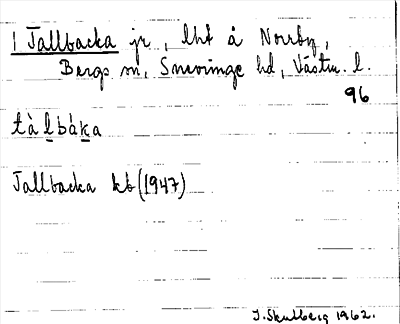 1 Tallbacka jr, lht å Norrby,
Bergs sn, Snevringe hd, Västm. l.
96
tàlbàka
Tallbacka kb (1947)
J. Skulberg 1962.